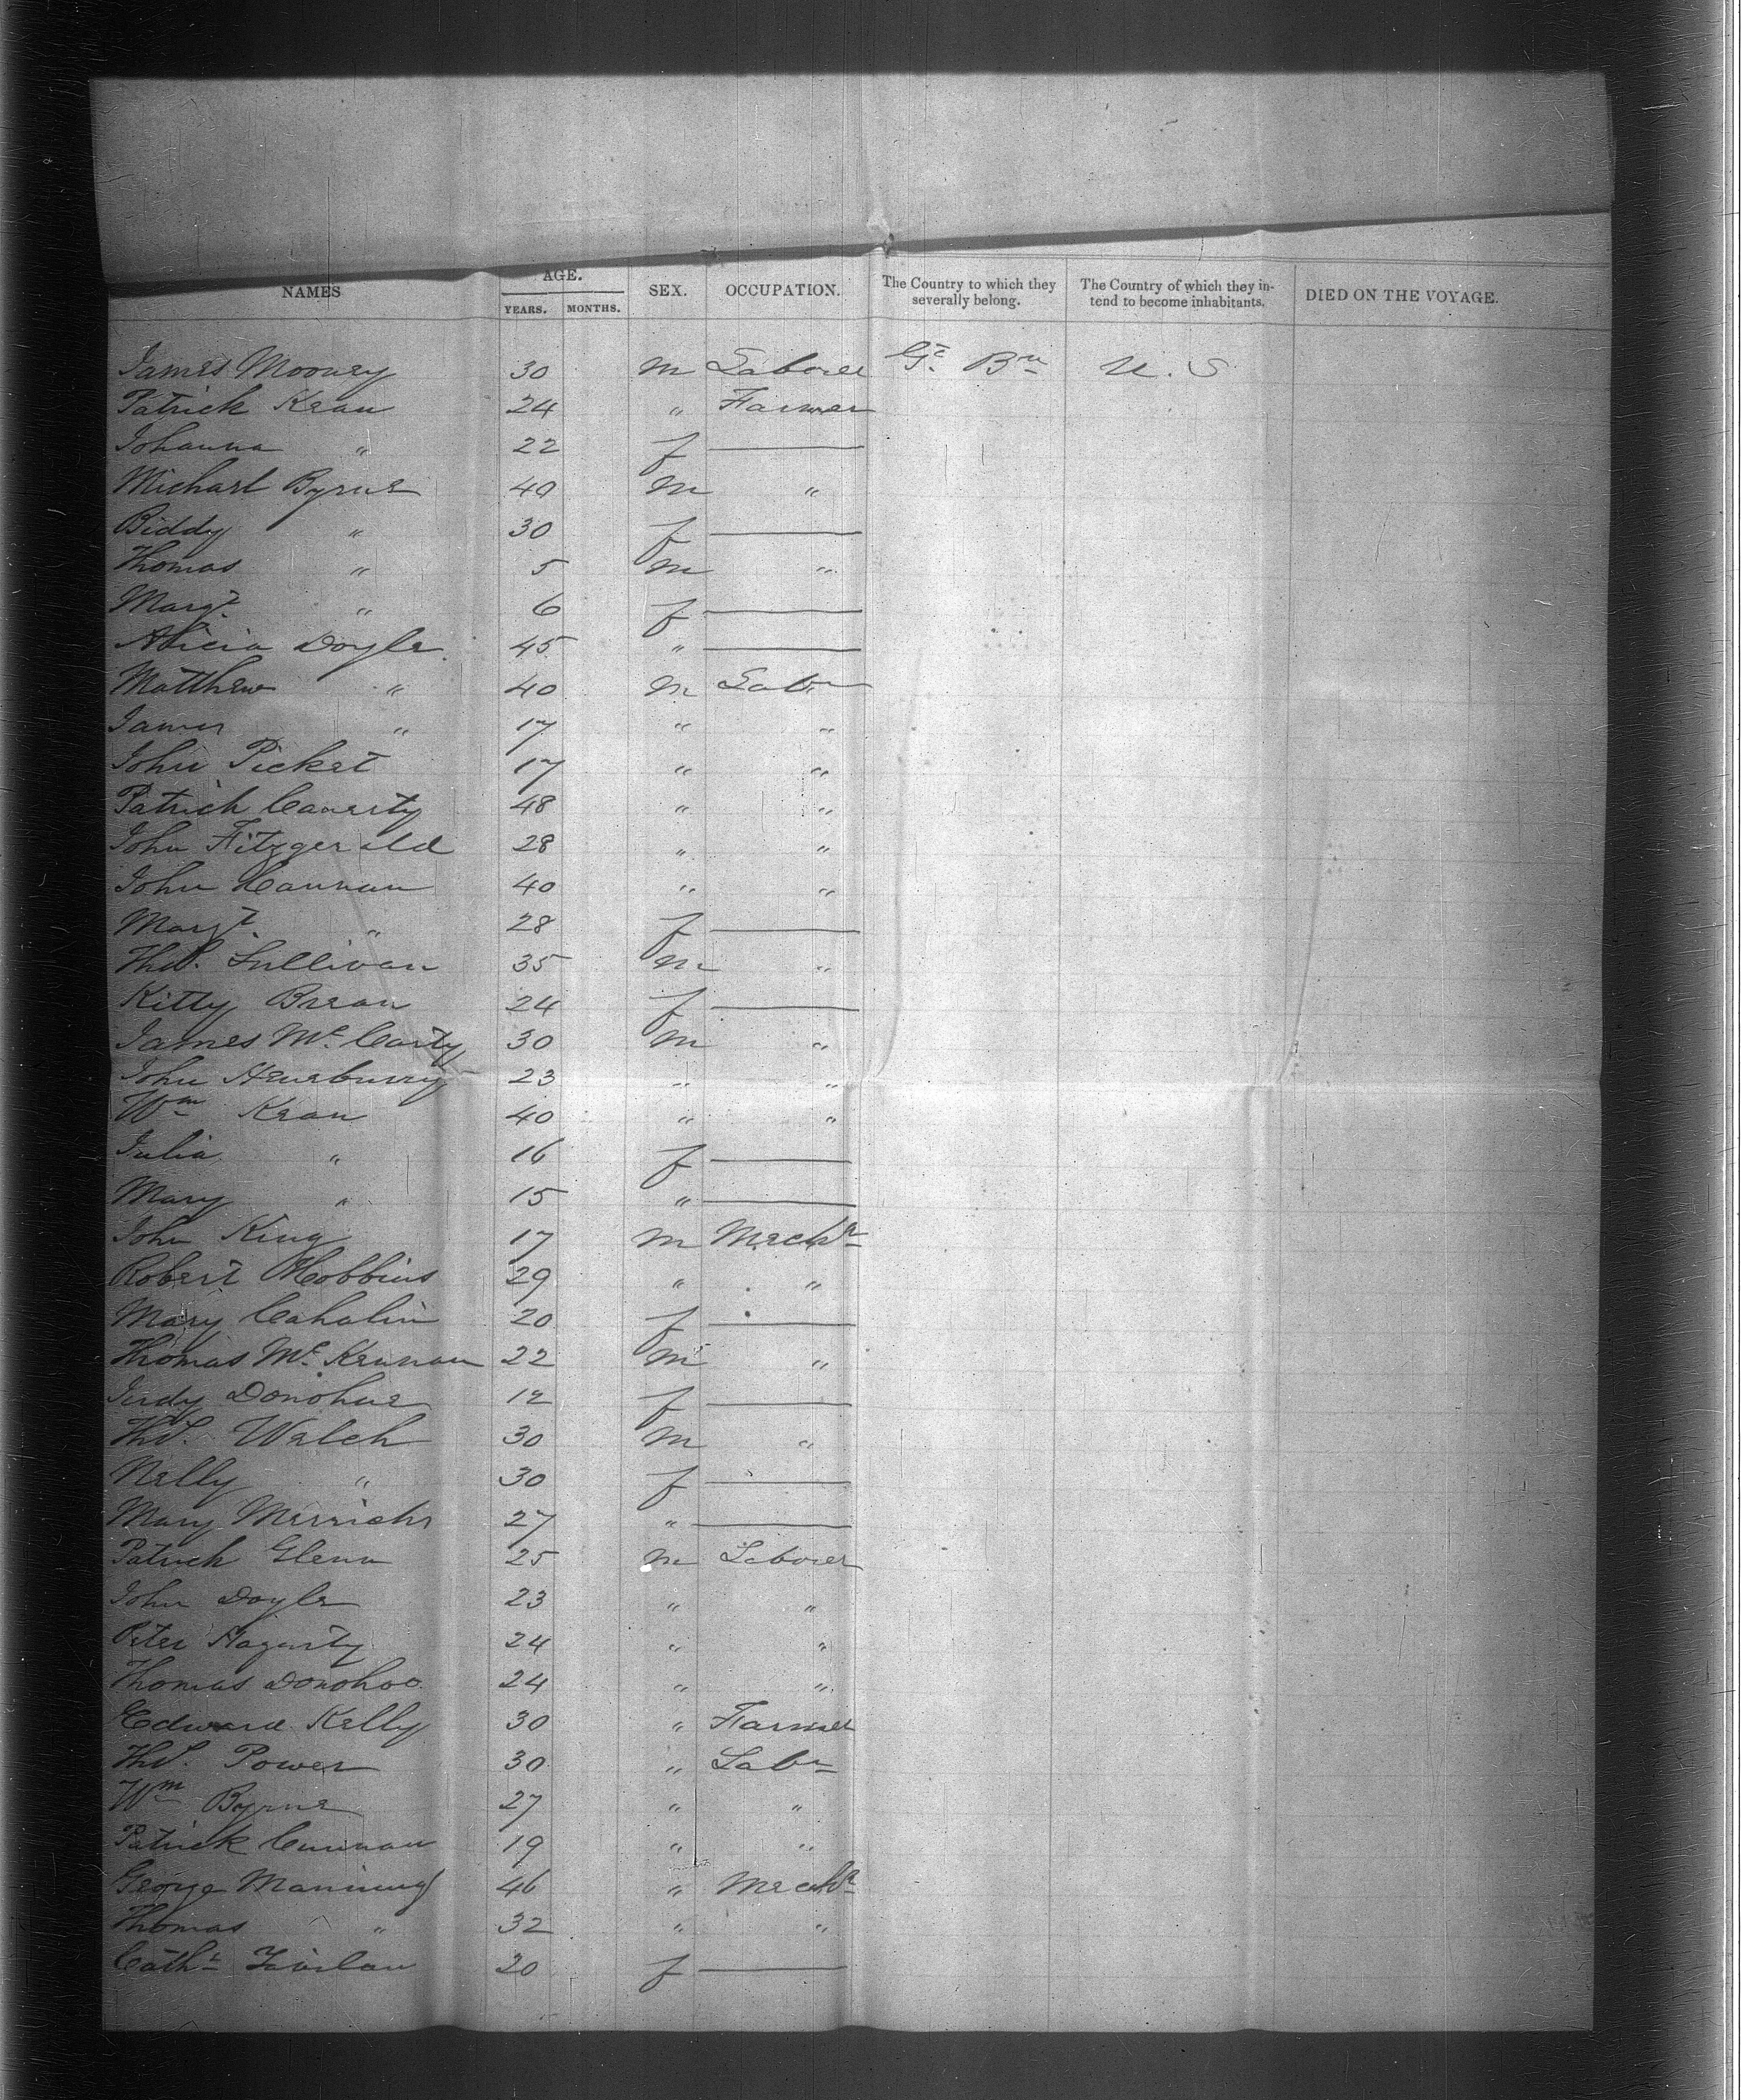 NAMES AGE. YEARS. MONTHS. SEX. OCCUPATION. The Country to which they severally belong. The Country of which they intend to become inhabitants. DIED ON THE VOYAGE.
James Mooney 30 m Laborer Gt. Brn U.S
Patrick Kean 24 " Farmer
Johanna " 22 f —
Michael Byrne 40 m "
Biddy " 30 f —
Thomas " 5 m "
Margt " 6 f —
Alicia Doyle 45 " —
Matthew " 40 m Labr
James " 17 " "
John Picket 17 " "
Patrick Caverty 48 " "
John Fitzgerald 28 " "
John Cannan 40 " "
Margt. " 28 f —
Thos. Sullivan 35 m "
Kitty Brean 24 f —
James Mc Carty 30 m "
John 23 " "
Wm Kean 40 " "
Julia " 16 f —
Mary " 15 " —
John King 17 m Mechc
Robert Hobbins 29 " "
Mary Cahalin 20 f —
Thomas Mc Kennan 22 m "
Judy Donohue 12 f —
Thos. Walch 30 m "
Nelly " 30 f —
Mary 27 " —
Patrick Glenn 25 m Laborer
John Doyle 23 " "
Peter Hagarty 24 " "
Thomas Donohoo 24 " "
Edward Kelly 30 " Farmer
Thos. Power 30 " Labr
Wm Byrne 27 " "
Patrick Cunnan 19 " "
George Manning 46 " Mechc
Thomas " 32 " "
Cathe 20 f —